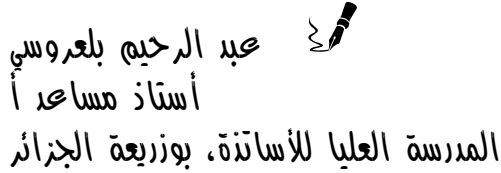 عبد الرحيم بلعروسي
أستاذ مساعد أ
المدرسة العليا للأساتذة، بوزريعة الجزائر